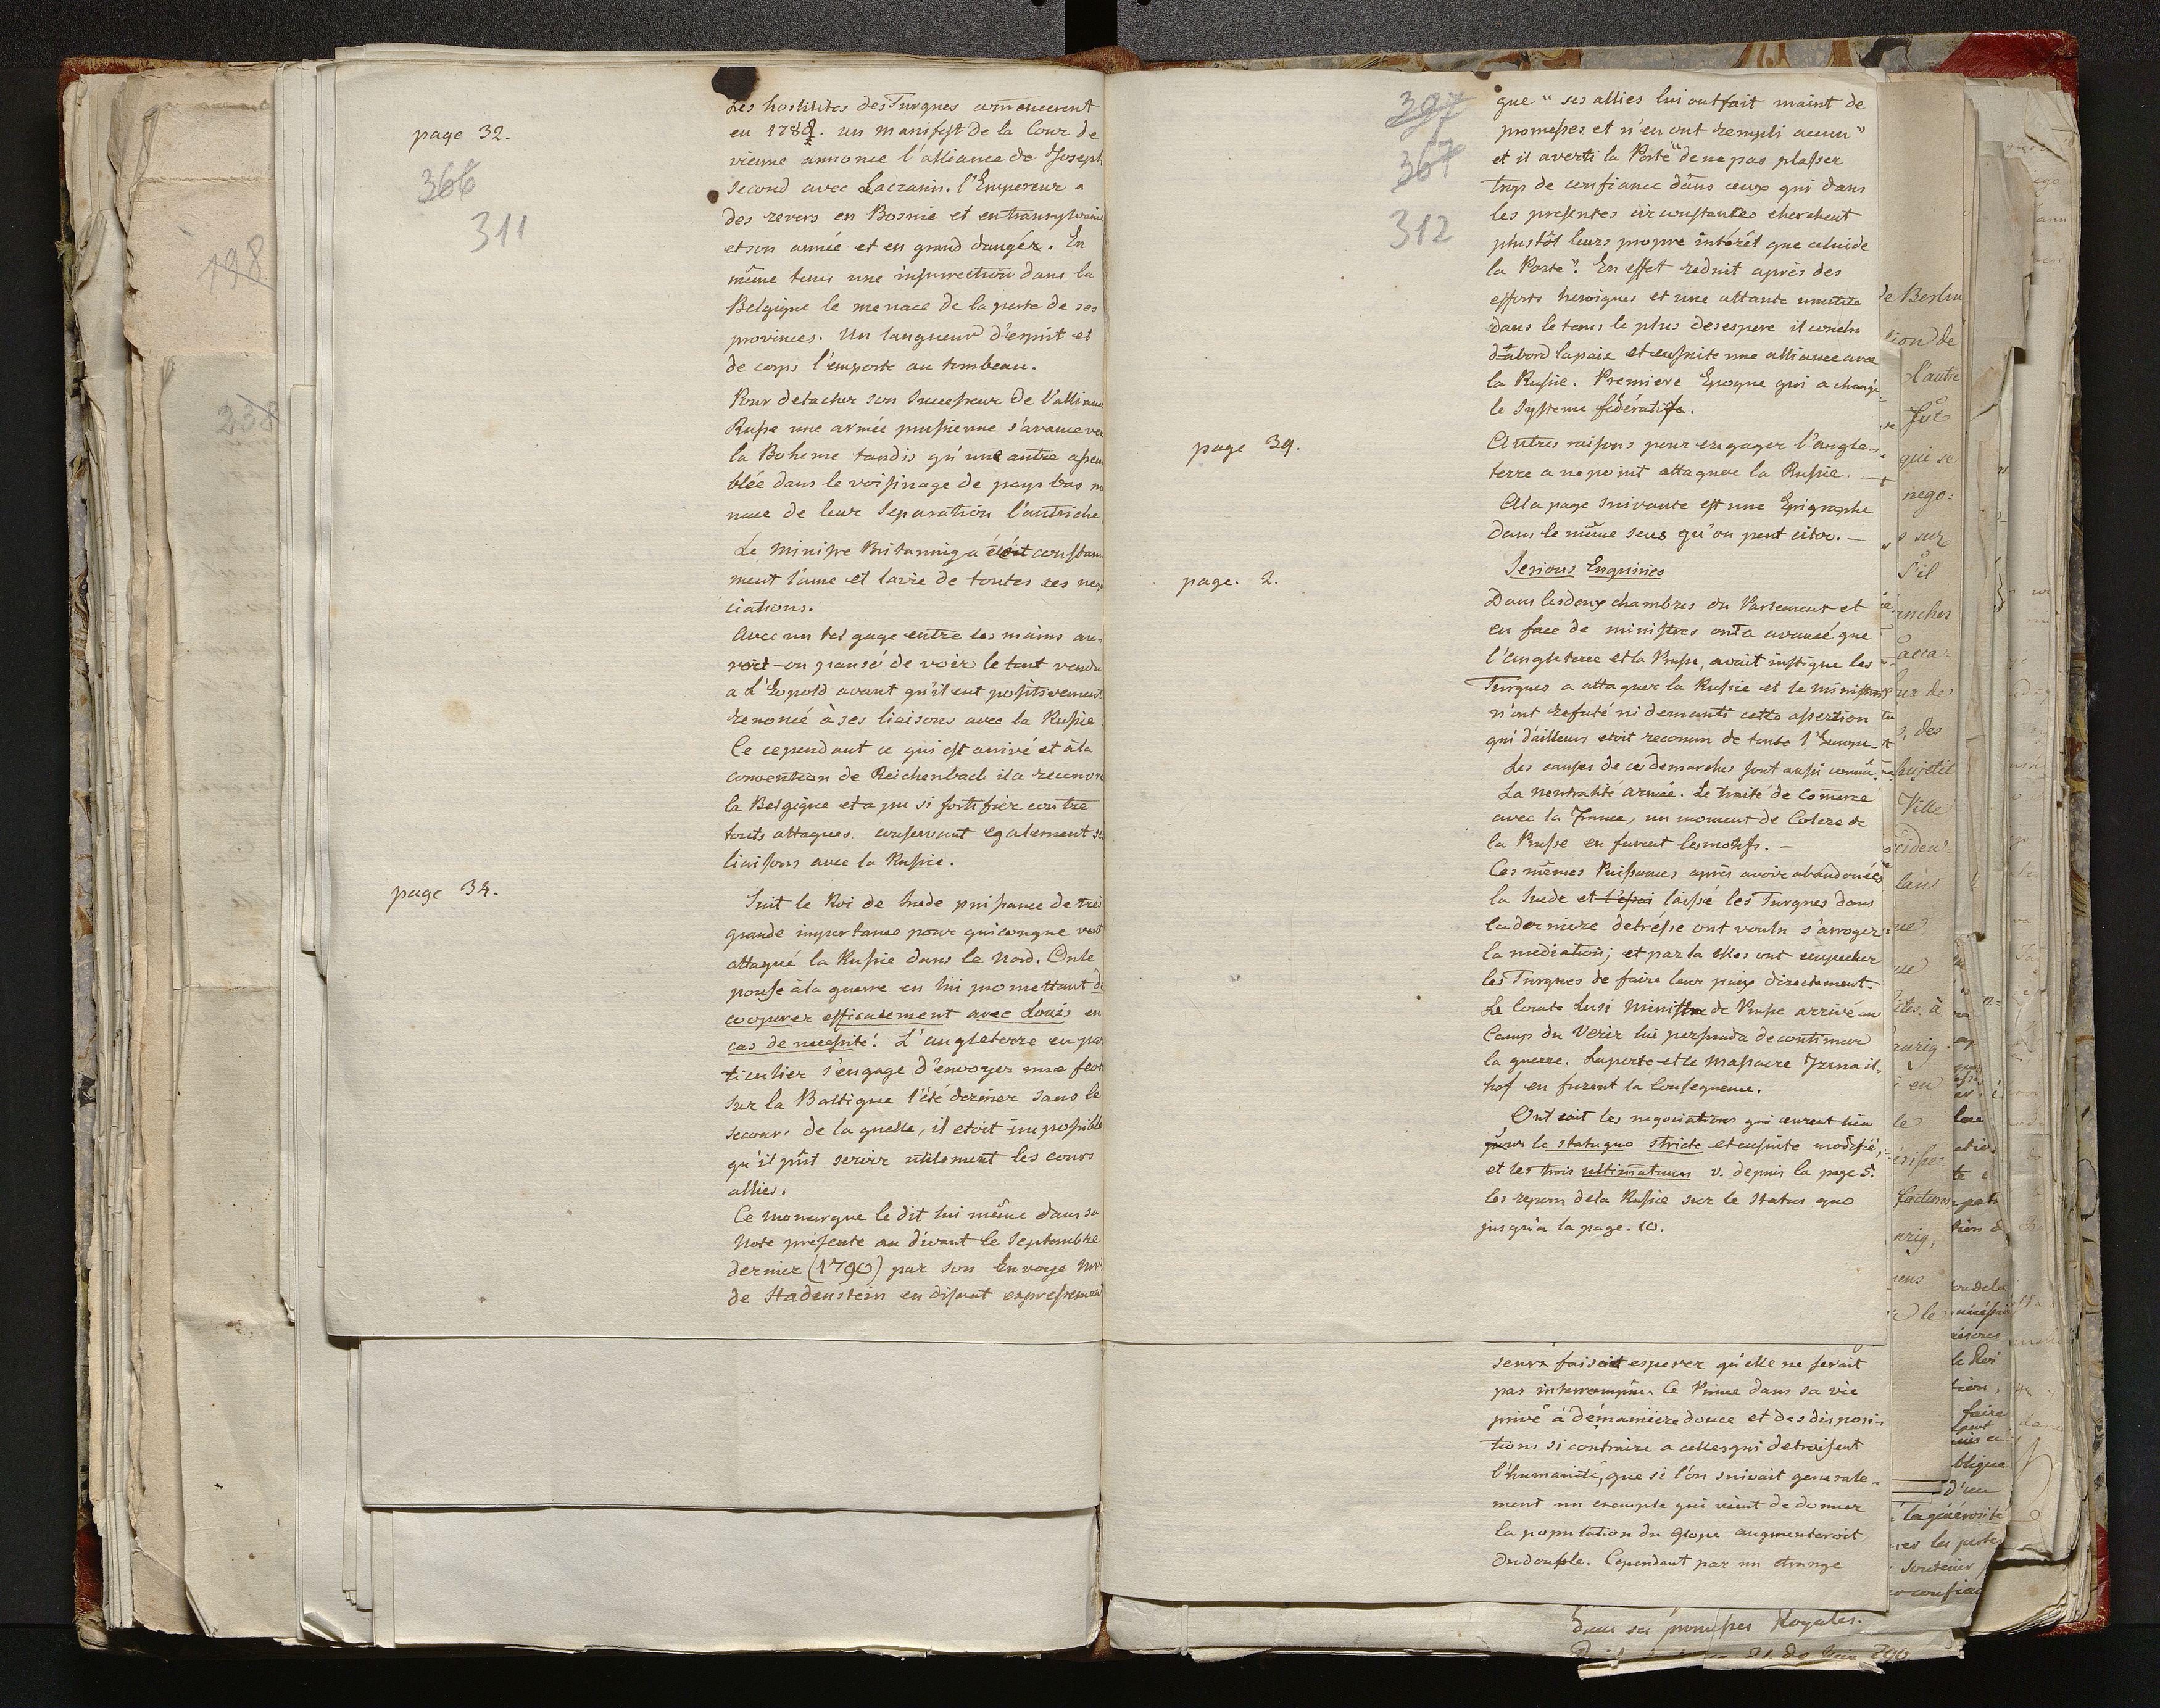 page 32.
366
311
Les hostilites des Turques comencerent
en 1788. un manifest de la Cour de
vienne annonce l'alliance de Joseph
second avec Laczarin. l'Empereur a
des revers en Bosnie et en transylvanie
et son armée et en grand dangér. En
même tems une insurrection dans la
Belgique le menace de la perte de ses
provinces. Un langueur d'esprit et
de corps l'emporte au tombeau.
Pour detacher son Successeur de l'allianc
Russe une armée prussienne s'avance ve
la Boheme tandis qu'une autre assem
blée dans le voisinage de pays bas m
nace de leur Separation l'autriche
Le Ministre Britanniq a étoit constam
ment l'ame et la vie de toutes ses neg
ciations.
Avec un tel gage entre les mains au-
roit-on pansé de voir le tout rendu
a L'Eopold avant qu'il eut positivement
renoncé à ses liaisons avec la Russie
Ce cependant ce qui est arrivé et à la
convention de Reichenbach il a recouvr
la Belgique et a pu si fortifier contre
touts attaques conservant egalement se
liaisons avec la Russie.
page 34.
Suit le Roi de Suede puissance de trés
grande importance pour quiconque veut
attaqué la Russie dans le Nord. On le
pousse à la guerre en lui promettant de
cooperer efficacement avec Louis en
cas de necessité! L'angleterre en par
ticulier s'engage d'envoyer une flot
sur la Baltique l'été dernier sans le
secour. de la quelle, il etoit impossible
qu'il pût servir utilement les cours
allies.
Ce monarque le dit lui même dans sa
Note présente au divant le Septembre
dernier (1790) par son Envoye Mr
de Stadenstein en disant expressement
397
367
312
que "ses allies lui ont fait maint de
promesses et n'en ont rempli aucun"
et il averti la Porte "de ne pas plasser
trop de confiance dans ceux qui dans
les presentes circonstances cherchent
plustôt leurs propre intérêt que celui de
la Porte". En effet reduit après des
efforts heroiques et une attante inutile
dans le tems le plus desespere il conclu
d'abord la paix et ensuite une alliance avec
la Russie. Premiere Epoque qui a changé
le Systeme fédératife.
page 39.
Autres raisons pour engager l'angle-
terre a ne point attaquer la Russie. —
A la page suivante est une Epigraphe
dans le même sens qu'on peut citer. —
Serious Enquiries
page. 2.
Dans les deux chambres du Parlement et
en face de ministres ont a avancé que
l'angleterre et la Prusse, avait instigue les
Turques a attaquer la Russie et le ministres
n'ont refuté ni demanti cette assertion
qui d'ailleurs etoit reconnu de toute l'Europe.
Les causes de ces demarches sont aussi connû.
La neutralité armée. Le traité de Comerce
avec la France, un moment de Colere de
la Prusse en furent les motifs. —
Ces mêmes Puissances après avoir abandonées
la Suede et l'essai laissé les Turques dans
la derniere detrésse ont voulu s'arroger
la mediation; et par la elles ont empecher
les Turques de faire leur paix directement.
Le Comte Lusi Ministre de Prusse arrivé au
Camp du Vezir lui persuada de continuer
la guerre. La perte et le massacre Ismail.
hof en furent la Consequence.
Ont sait les negociations qui eurent lieu
pour le statuquo stricte et ensuite modifié,
et les trois ultimatum v. depuis la page 5.
les repons de la Russie sur le status quo
jusqu'a la page. 10.
faisait esperer qu'elle ne serait
pas interrompüe. Ce Prince dans sa vie
privé à dé maniere douce et des disposi-
tions si contraire a celles qui detruisent
l'humanité, que si l'on suivait generale-
ment un exemple qui vient de donner
la population du globe augmenteroit
du double. Cependant par un etrange
dans ses promesses Royales.
198
238
de Berlin
tion de
l'autre
fut
qui se
nego=
s sur
s'il
anches
acca=
des
Ville